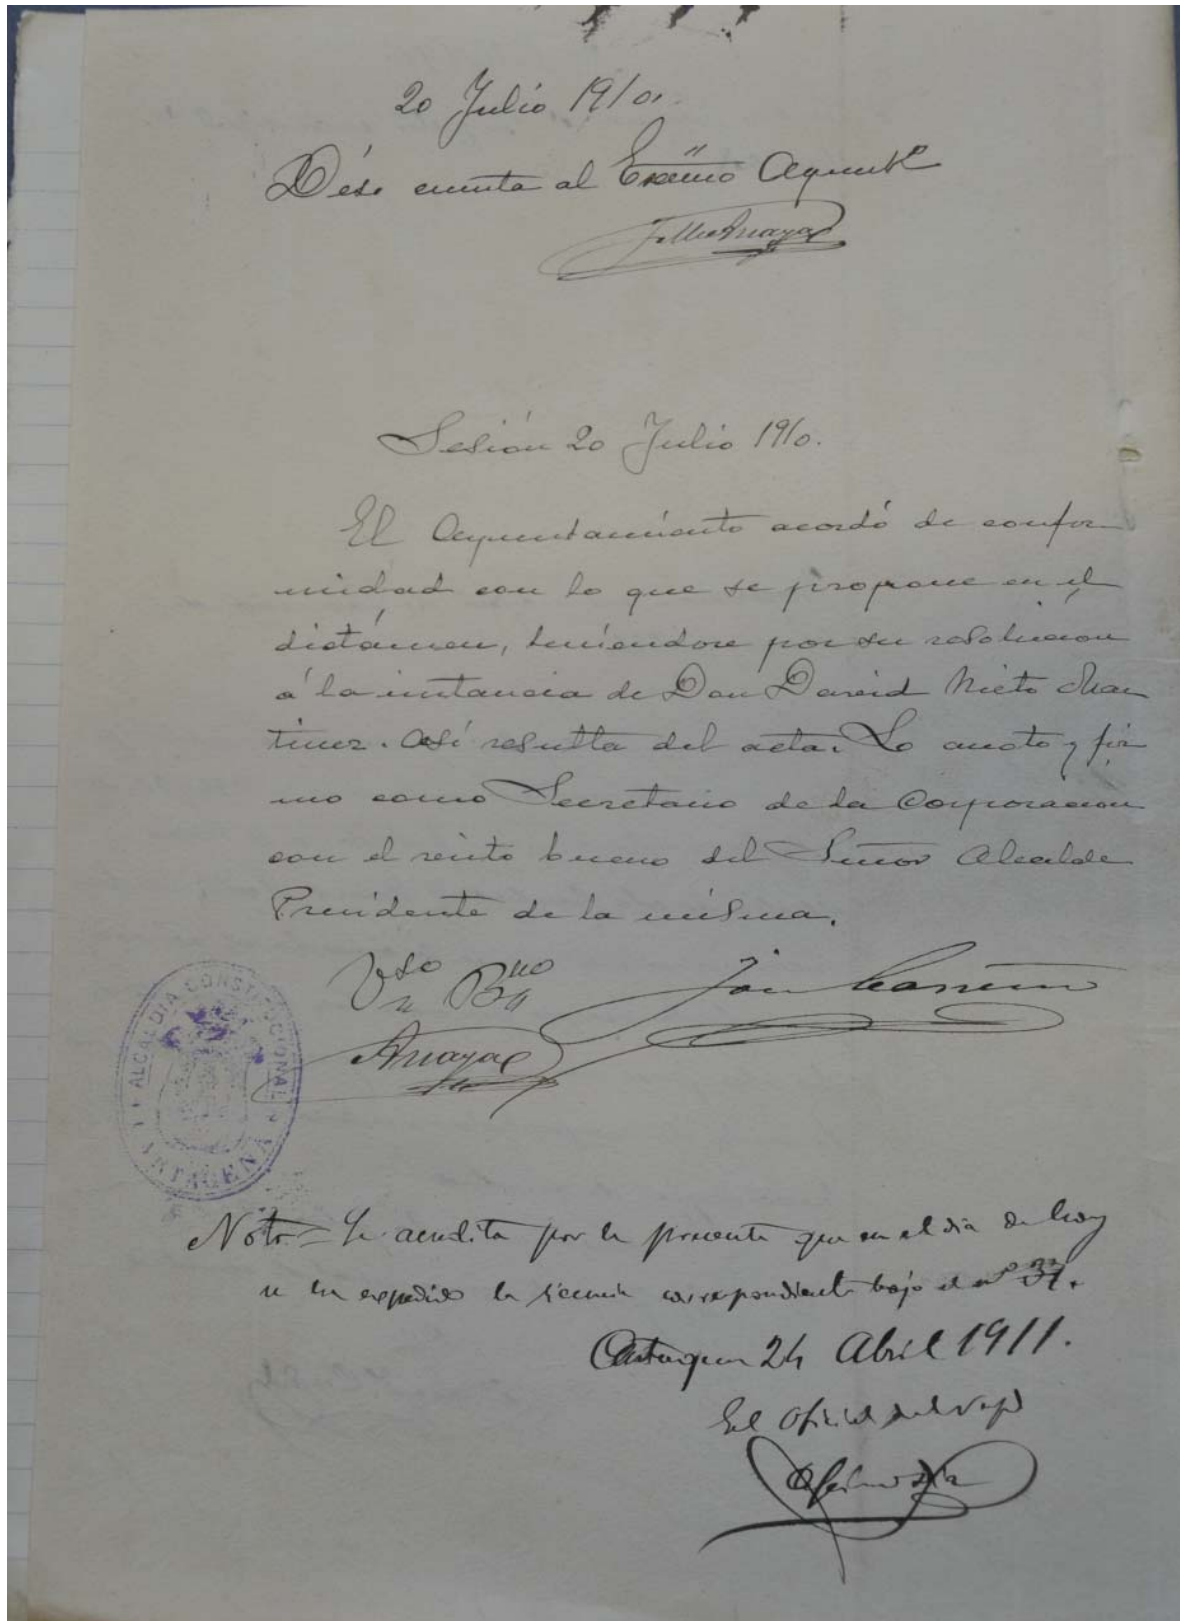 20 Julio 1910.
Dése cuenta al Excmo Ayuntº
Sesión 20 Julio 1910.
El Ayuntamiento acordó de confor
midad con lo que se propone en el
dictámen, teniendose por su resolucion
á la instancia de Don David Nieto Mar
tinez. Así resulta del acta. Lo anoto y fir
mo como Secretario de la Corporacion
con el visto bueno del Señor Alcalde
Presidente de la misma.
Vto Bno
Anaya
José Carreño
ALCALDIA CONSTITUCIONAL
CARTAGENA
Nota = Se acredita por la presente que en el dia de hoy
se ha expedido la licencia correspondiente bajo el nº 37.
Cartagena 24 Abril 1911.
El Oficial del Negdº